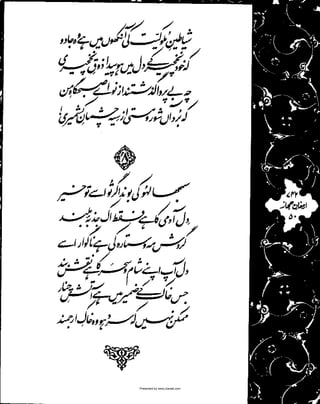 شیاطینِ ملوکیت کی آنکھوں میں ہے وہ جادو
کہ خود نخچیر کے دل میں ہو پیدا ذوقِ نخچیری
چہ بے پروا گذشتند از نوائے صبحگاہِ من
کہ برد آں شور و مستی از سیہ چشمانِ کشمیری!
۸
سمجھا لہو کی بوند اگر تو اسے تو خیر
دل آدمی کا ہے فقط اک جذبۂ بلند
گردش مہ و ستارہ کی ہے ناگوار اسے
دل آپ اپنے شام و سحر کا ہے نقش بند
جس خاک کے ضمیر میں ہے آتشِ چنار
ممکن نہیں کہ سرد ہو وہ خاکِ ارجمند
۷۴۲
ارمغانِ حجاز
۵۰